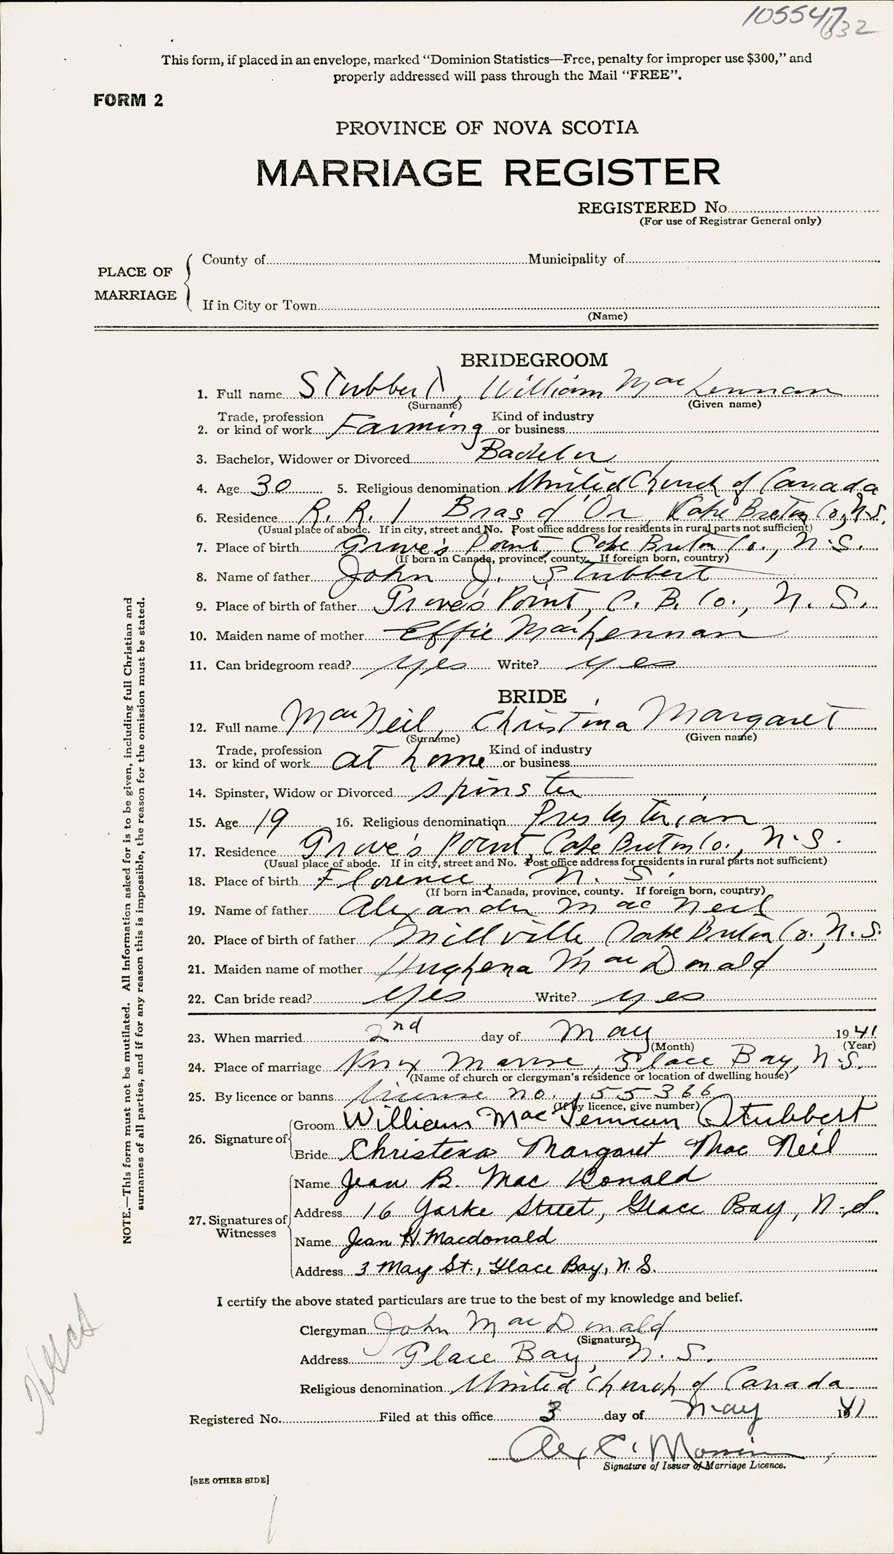 105547
632
This form, if placed in an envelope, marked “Dominion Statistics—Free, penalty for improper use $300,” and
properly addressed will pass through the Mail “FREE”.
FORM 2
PROVINCE OF NOVA SCOTIA
MARRIAGE REGISTER
REGISTERED No.
(For use of Registrar General only)
PLACE OF MARRIAGE
County of Municipality of
If in City or Town
(Name)
BRIDEGROOM
1. Full name Stubbert, William MacLennan
(Surname) (Given name)
2. Trade, profession or kind of work Farming Kind of industry or business
3. Bachelor, Widower or Divorced Bachelor
4. Age 30 5. Religious denomination United Church of Canada
6. Residence R. R. 1 Bras d'Or, Cape Breton Co., N.S.
(Usual place of abode. If in city, street and No. Post office address for residents in rural parts not sufficient)
7. Place of birth Grove's Point, Cape Breton Co., N.S.
(If born in Canada, province, county. If foreign born, country)
8. Name of father John J. Stubbert
9. Place of birth of father Grove's Point, C. B. Co., N. S.
10. Maiden name of mother Effie MacLennan
11. Can bridegroom read? yes Write? yes
BRIDE
12. Full name MacNeil, Christina Margaret
(Surname) (Given name)
13. Trade, profession or kind of work at home Kind of industry or business
14. Spinster, Widow or Divorced spinster
15. Age 19 16. Religious denomination Presbyterian
17. Residence Grove's Point, Cape Breton Co., N.S.
(Usual place of abode. If in city, street and No. Post office address for residents in rural parts not sufficient)
18. Place of birth Florence, N. S.
(If born in Canada, province, county. If foreign born, country)
19. Name of father Alexander MacNeil
20. Place of birth of father Millville, Cape Breton Co., N.S.
21. Maiden name of mother Hughena MacDonald
22. Can bride read? yes Write? yes
23. When married 2nd day of May 1941
(Month) (Year)
24. Place of marriage Knox Manse, Glace Bay, N.S.
(Name of church or clergyman's residence or location of dwelling house)
25. By licence or banns License no. 155366
(If by licence, give number)
26. Signature of Groom William MacLennan Stubbert
Bride Christena Margaret MacNeil
27. Signatures of Witnesses
Name Jean B. MacDonald
Address 16 Yorke Street, Glace Bay, N.S.
Name Jean H. Macdonald
Address 3 May St., Glace Bay, N.S.
I certify the above stated particulars are true to the best of my knowledge and belief.
Clergyman John MacDonald
(Signature)
Address Glace Bay, N. S.
Religious denomination United Church of Canada
Registered No. Filed at this office 3 day of May 1941
Alex C.
Signature of Issuer of Marriage Licence.
[SEE OTHER SIDE]
NOTE.—This form must not be mutilated. All Information asked for is to be given, including full Christian and
surnames of all parties, and if for any reason this is impossible, the reason for the omission must be stated.